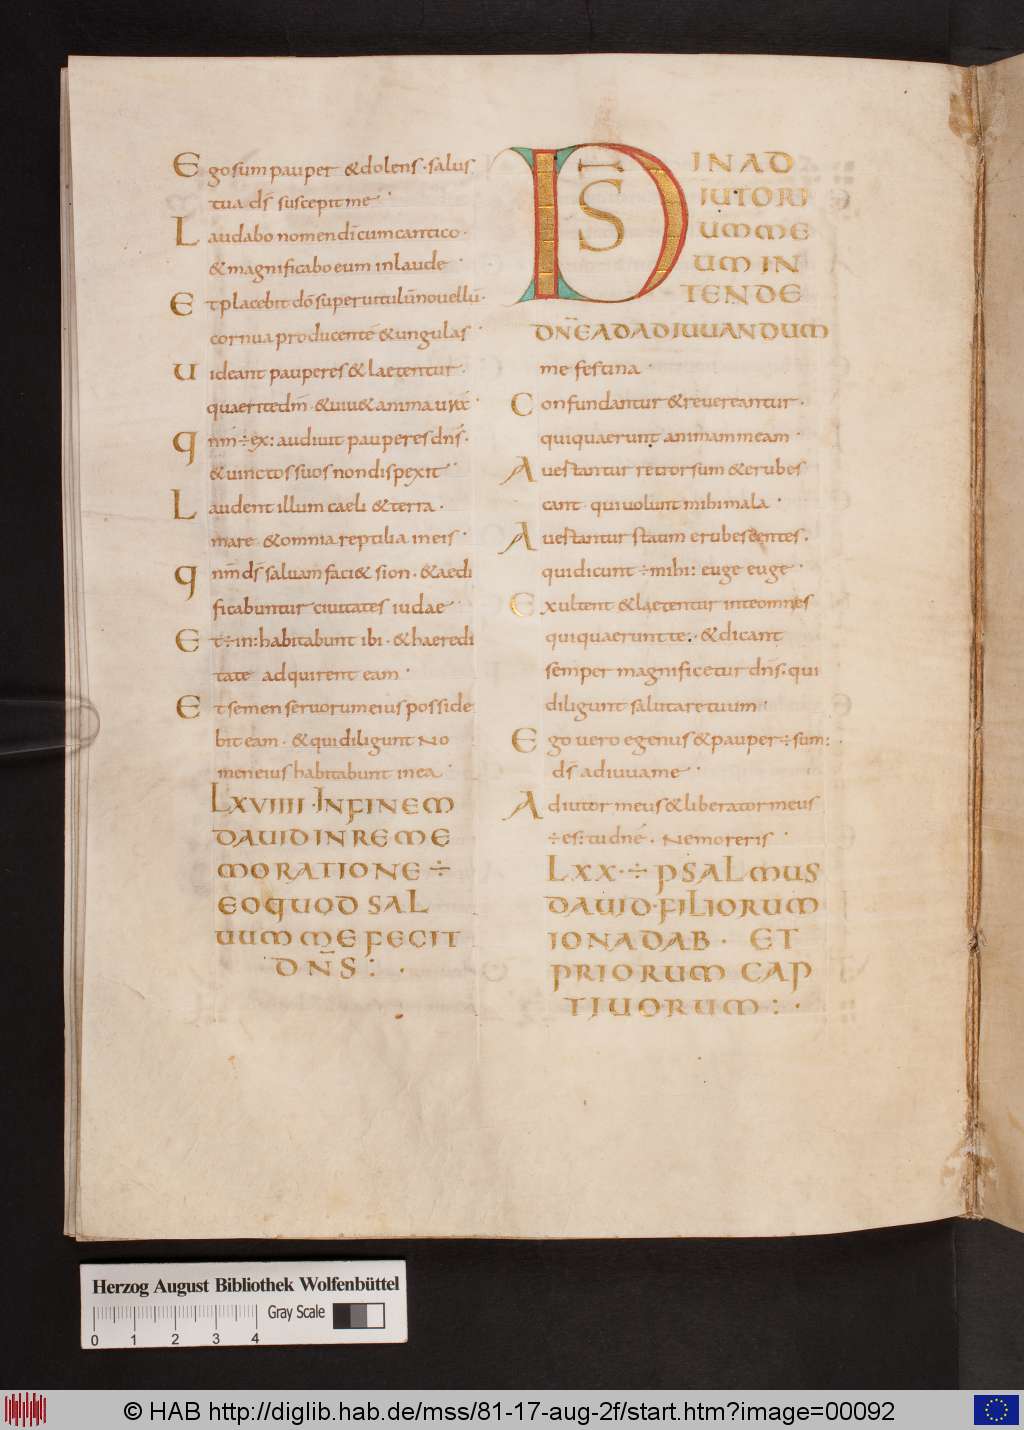 Ego sum pauper & dolens · salus
tua d̄s suscepit me
Laudabo nomen dī cum cantico ·
& magnificabo eum in laude
Et placebit dō super uitulū nouellū ·
cornua producentē & ungulas
Uideant pauperes & laetentur ·
quaerite dm̄ · & uiu& anima
Qnm̄ ÷ ex: audiuit pauperes dn̄s ·
& uinctos suos non dispexit
Laudent illum caeli & terra ·
mare & omnia reptilia in eis
Qnm̄ d̄s saluam faci& sion · & aedi
ficabuntur ciuitates iudae
Et ÷ in: habitabunt ibi · & haeredi
tate adquirent eam
Et semen seruorum eius posside
bit eam · & qui diligunt no
men eius habitabunt in ea
LXVIIII · IN FINEM
DAUID IN REME
MORATIONE ÷
EO QUOD SAL
UUM ME FECIT
DN̄S : ·
D̄S IN AD
IUTORI
UM ME
UM IN
TENDE
DN̄E AD ADIUUANDUM
me festina
Confundantur & reuereantur ·
qui quaerunt animam meam
Auertantur retrorsum & erubes
cant qui uolunt mihi mala
Auertantur statim erubescentes ·
qui dicunt ÷ mihi: euge euge
Exultent & laetentur in te omnes
qui quaerunt te · & dicant
semper magnificetur dn̄s · qui
diligunt salutare tuum
Ego uero egenus & pauper ÷ sum:
d̄s adiuua me
Adiutor meus & liberator meus
÷ es: tu dnē · ne moreris
LXX · ÷ PSALMUS
DAUID · FILIORUM
IONADAB · ET
PRIORUM CAP
TIUORUM : ·
Herzog August Bibliothek Wolfenbüttel
Gray Scale
0 1 2 3 4
© HAB http://diglib.hab.de/mss/81-17-aug-2f/start.htm?image=00092